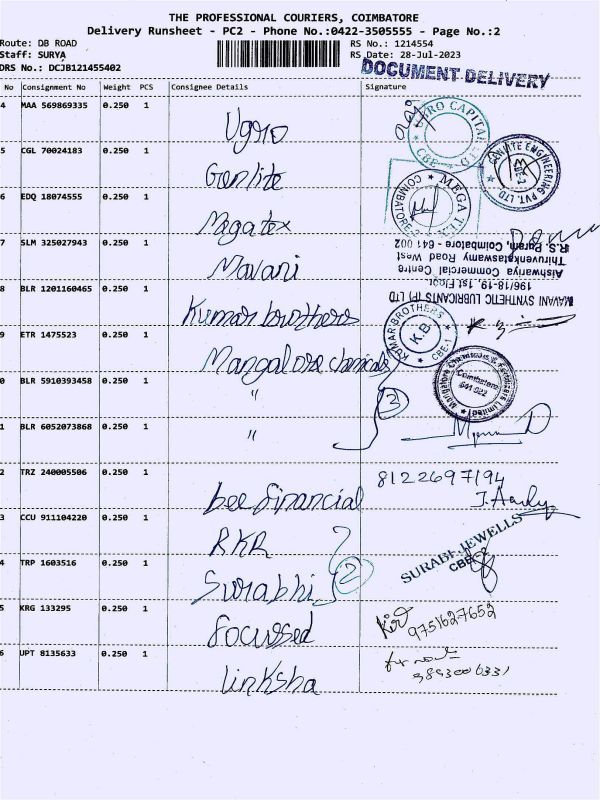 THE PROFESSIONAL COURIERS, COIMBATORE
Delivery Runsheet - PC2 - Phone No.:0422-3505555 - Page No.:2
Route: DB ROAD RS No.: 1214554
Staff: SURYA RS Date: 28-Jul-2023
DRS No.: DCJB121455402 DOCUMENT DELIVERY
No Consignment No Weight PCS Consignee Details Signature
4 MAA 569869335 0.250 1 Ugro
UGRO CAPITAL CBE
5 CGL 70024183 0.250 1 Genlite
GENLITE ENGINEERING PVT. LTD
6 EDQ 18074555 0.250 1 Megatex
COIMBATORE MEGA
7 SLM 325027943 0.250 1 Mavani
MAVANI SYNTHETIC LUBRICANTS (P) LTD
196/18-19, 1st Floor
Aishwarya Commercial Centre
Thiruvenkataswamy Road West
R.S. Puram, Coimbatore - 641 002
8 BLR 1201160465 0.250 1 Kumar browthers
KUMAR BROTHERS K.B. CBE-1
9 ETR 1475523 0.250 1 Mangalore chemicals
Mangalore Chemicals & Fertilizers Limited Coimbatore 641 002
0 BLR 5910393458 0.250 1 " 3
1 BLR 6052073868 0.250 1 "
2 TRZ 240005506 0.250 1 bee financial 8122697194
3 CCU 911104220 0.250 1 RKR
SURABI JEWELLS
CBE-2
4 TRP 1603516 0.250 1 Surabhi 2
5 KRG 133295 0.250 1 focussed 9751627652
6 UPT 8135633 0.250 1 linksha